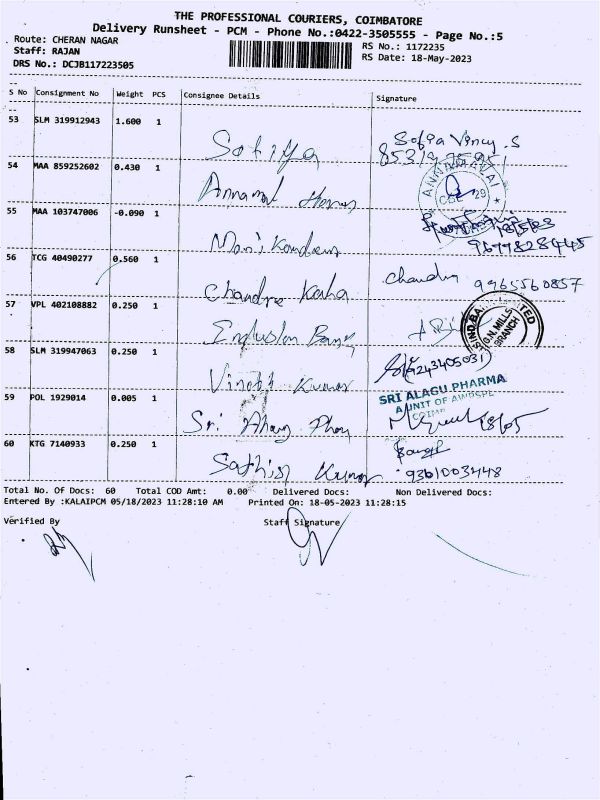 THE PROFESSIONAL COURIERS, COIMBATORE
Delivery Runsheet - PCM - Phone No.:0422-3505555 - Page No.:5
Route: CHERAN NAGAR
RS No.: 1172235
Staff: RAJAN
RS Date: 18-May-2023
DRS No.: DCJB117223505
S No Consignment No Weight PCS Consignee Details Signature
53 SLM 319912943 1.600 1 Sofiya Sofia Vincy .S
54 MAA 859252602 0.430 1 Annamal ANNAMALAI CBE 29
55 MAA 103747006 -0.090 1 Manikandan 18/5/23
9677828445
56 TCG 40490277 0.560 1 Chandra Kala chandra 9965560857
57 VPL 402108882 0.250 1 G.N. MILLS BRANCH
58 SLM 319947063 0.250 1 Vinoth Kumar 9243405031
59 POL 1929014 0.005 1 Sri SRI ALAGU PHARMA
A UNIT OF
18/05
60 KTG 7140933 0.250 1 Sathis Kumar
9361003448
Total No. Of Docs: 60 Total COD Amt: 0.00 Delivered Docs: Non Delivered Docs:
Entered By :KALAIPCM 05/18/2023 11:28:10 AM Printed On: 18-05-2023 11:28:15
Verified By Staff Signature